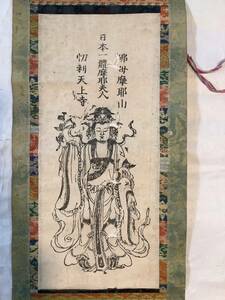 那州摩耶山
日本一體摩耶夫人
忉利天上寺